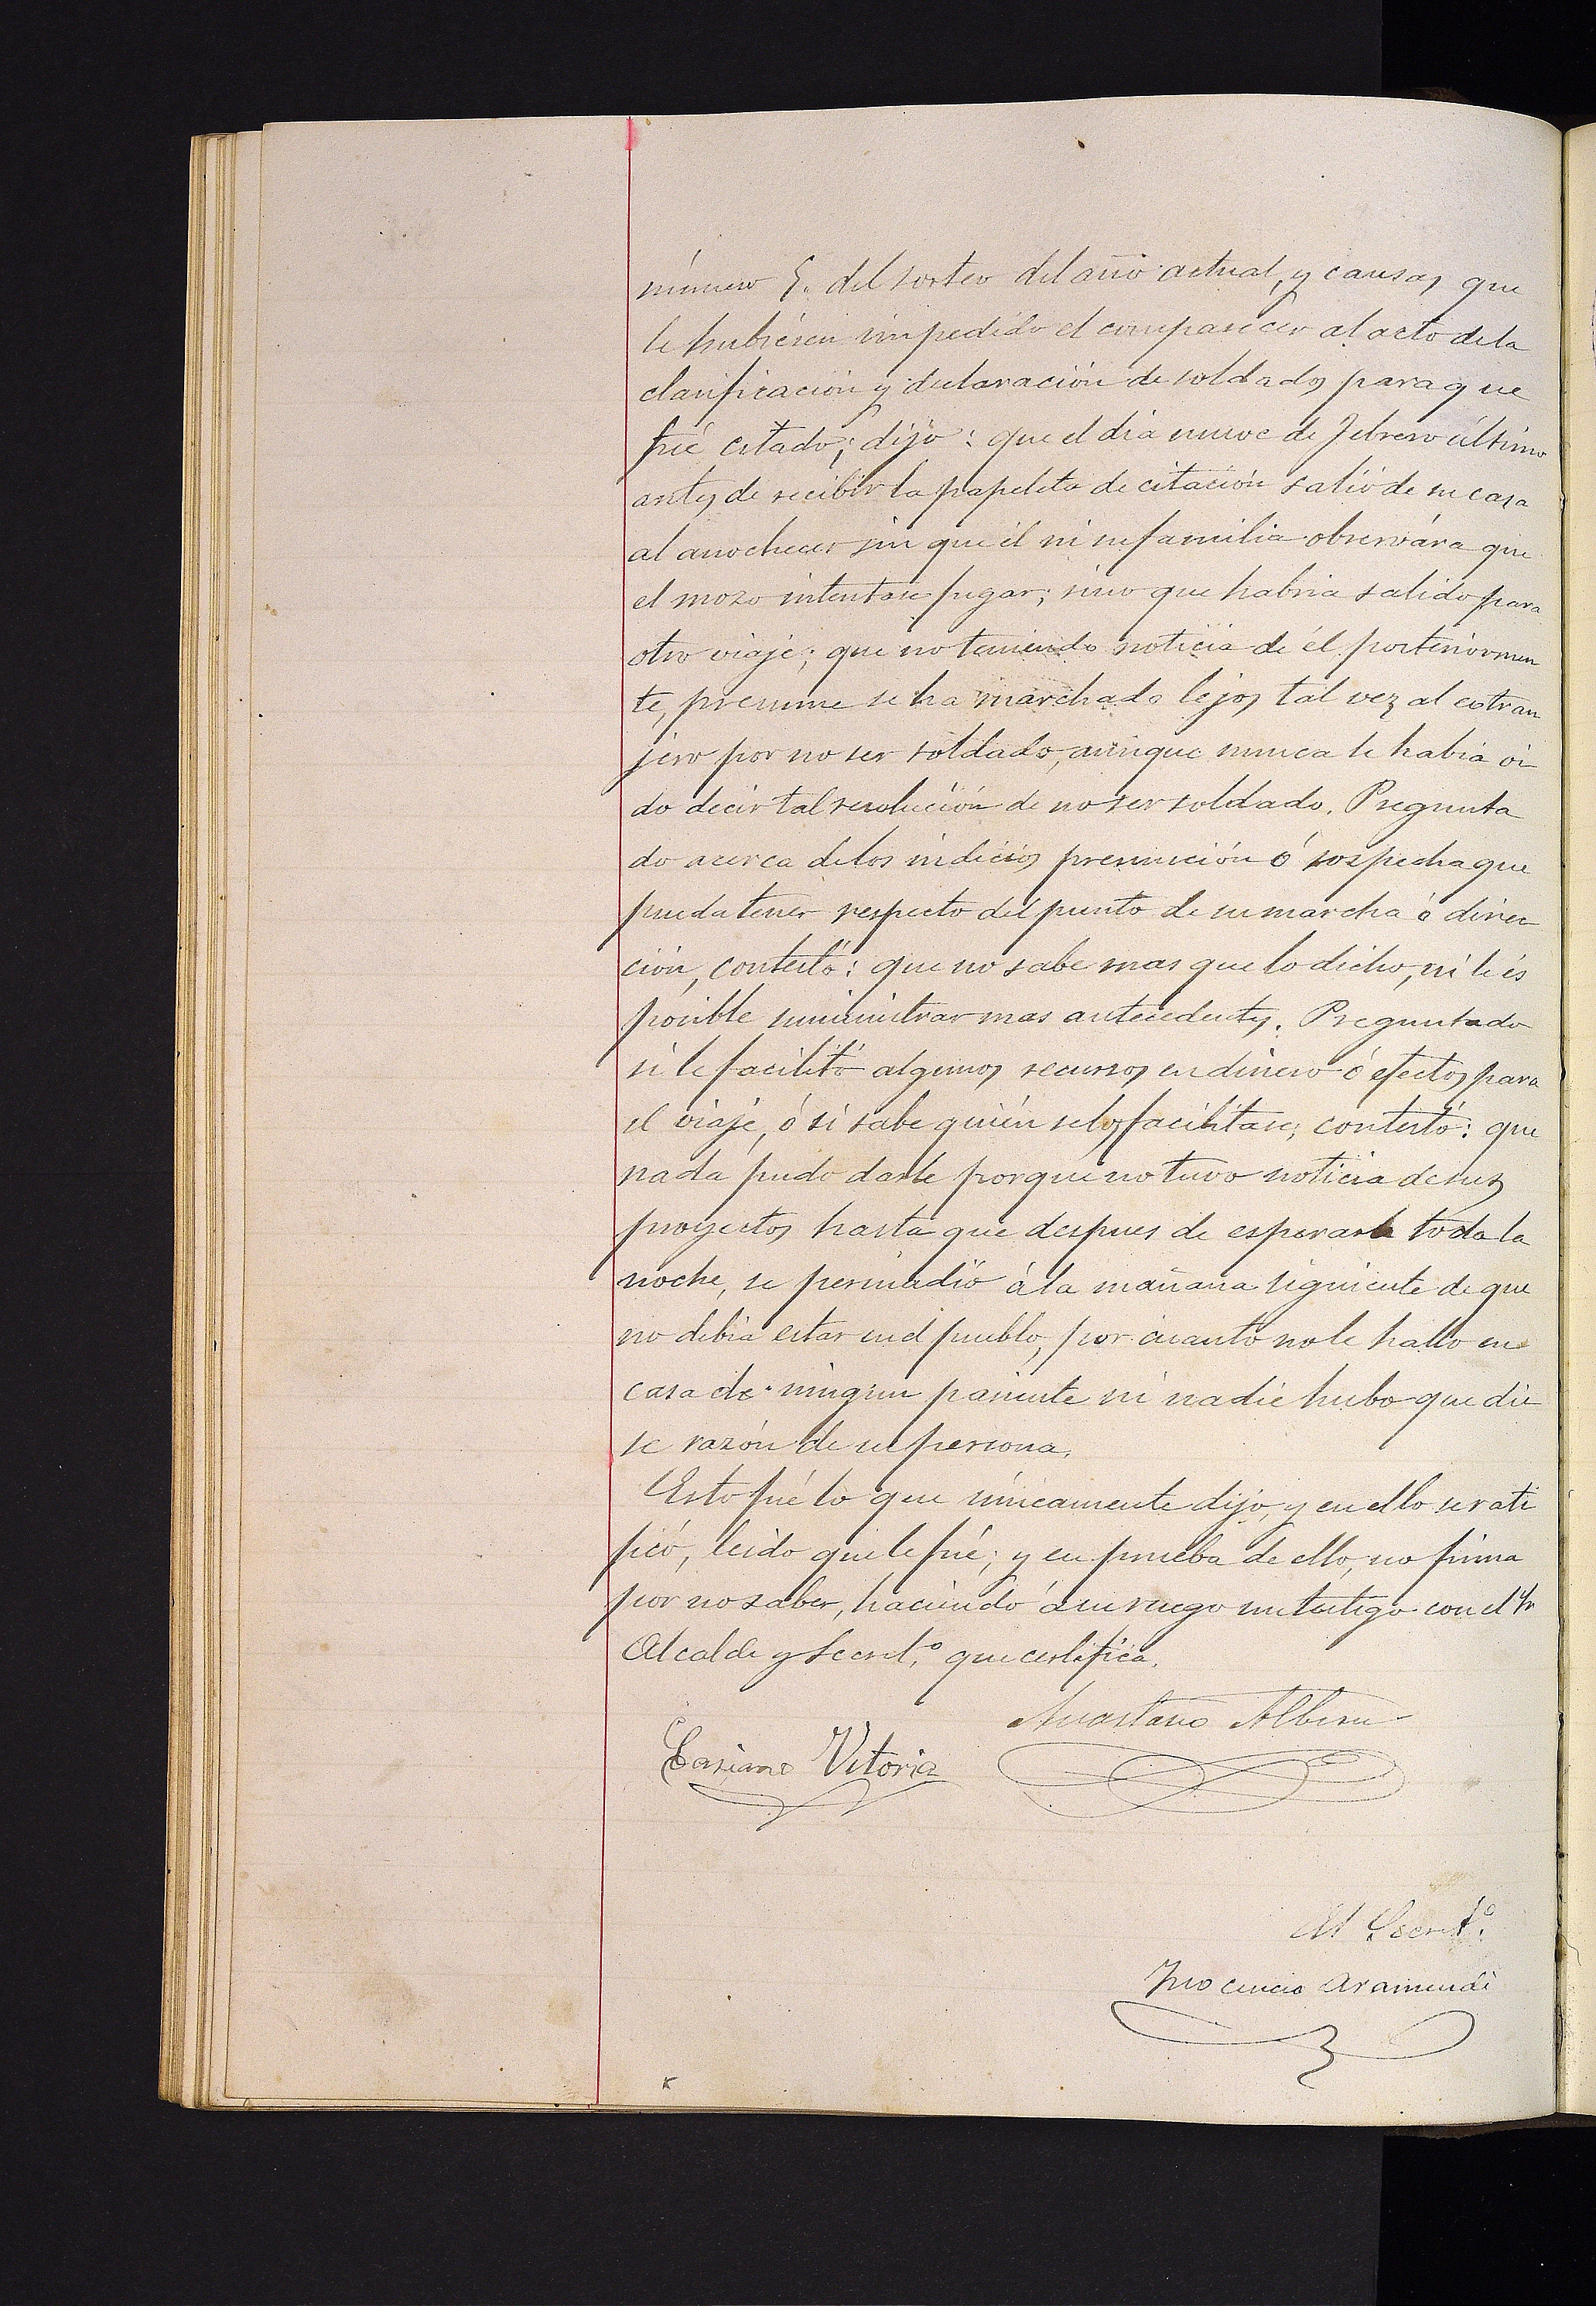 número 5. del sorteo del año actual, y causas que
le hubiesen impedido el comparecer al acto de la
clasificación y declaración de soldados para que
fué citado; dijo: que el dia nueve de Febrero último
antes de recibir la papeleta de citación salió de su casa
al anochecer sin que él ni su familia observára que
el mozo intentase fugar; sino que habria salido para
otro viaje; que no teniendo noticia de él posteriormen
te, presume se ha marchado lejos tal vez al estran
jero por no ser soldado, aunque nunca le habia oi
do decir tal resolución de no ser soldado. Pregunta
do acerca de los indicios presunción ó sospecha que
pueda tener respecto del punto de su marcha ó direc
ción, contestó: que no sabe mas que lo dicho, ni le és
posible suministrar mas antecedentes. Preguntado
si le facilitó algunos recursos en dinero ó efectos para
el viaje, ó si sabe quién se los facilitase; contestó: que
nada pudo darle porque no tuvo noticia de sus
proyectos hasta que despues de esperarle toda la
noche, se persuadió á la mañana siguiente de que
no debia estar en el pueblo, por cuanto no le halló en
casa de ningun pariente ni nadie hubo que die
se razón de su persona.
Esto fué lo que únicamente dijo, y en ello se rati
ficó, leido que le fué; y en prueba de ello, no firma
por no saber, haciendo á su ruego un testigo con el Sr
Alcalde y Secret.º que certifica.
Anastasio Albeniz
Casiano Vitoria
El Secret.º
Inocencio Aramendi